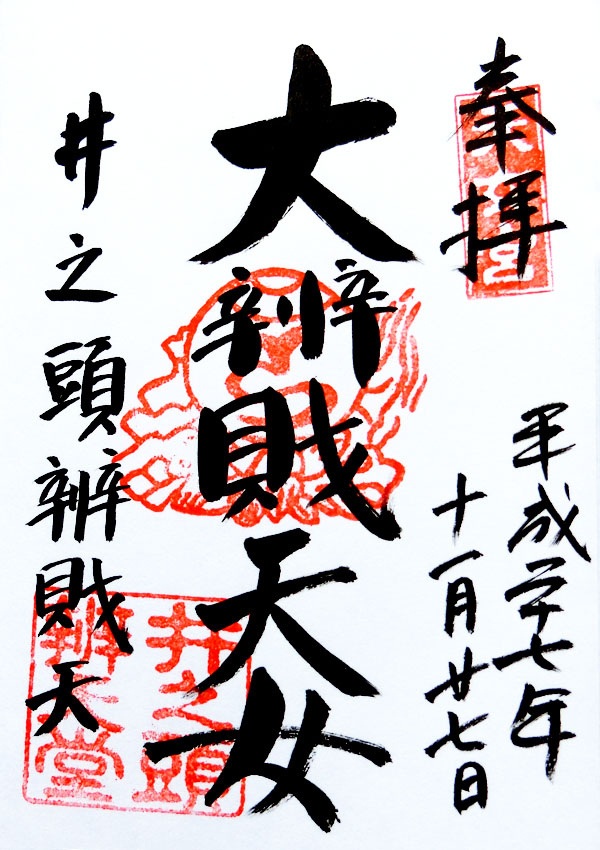 奉拝
平成二十七年
十一月廿七日
大辨財天女
井之頭辨財天
井之頭
辨天堂